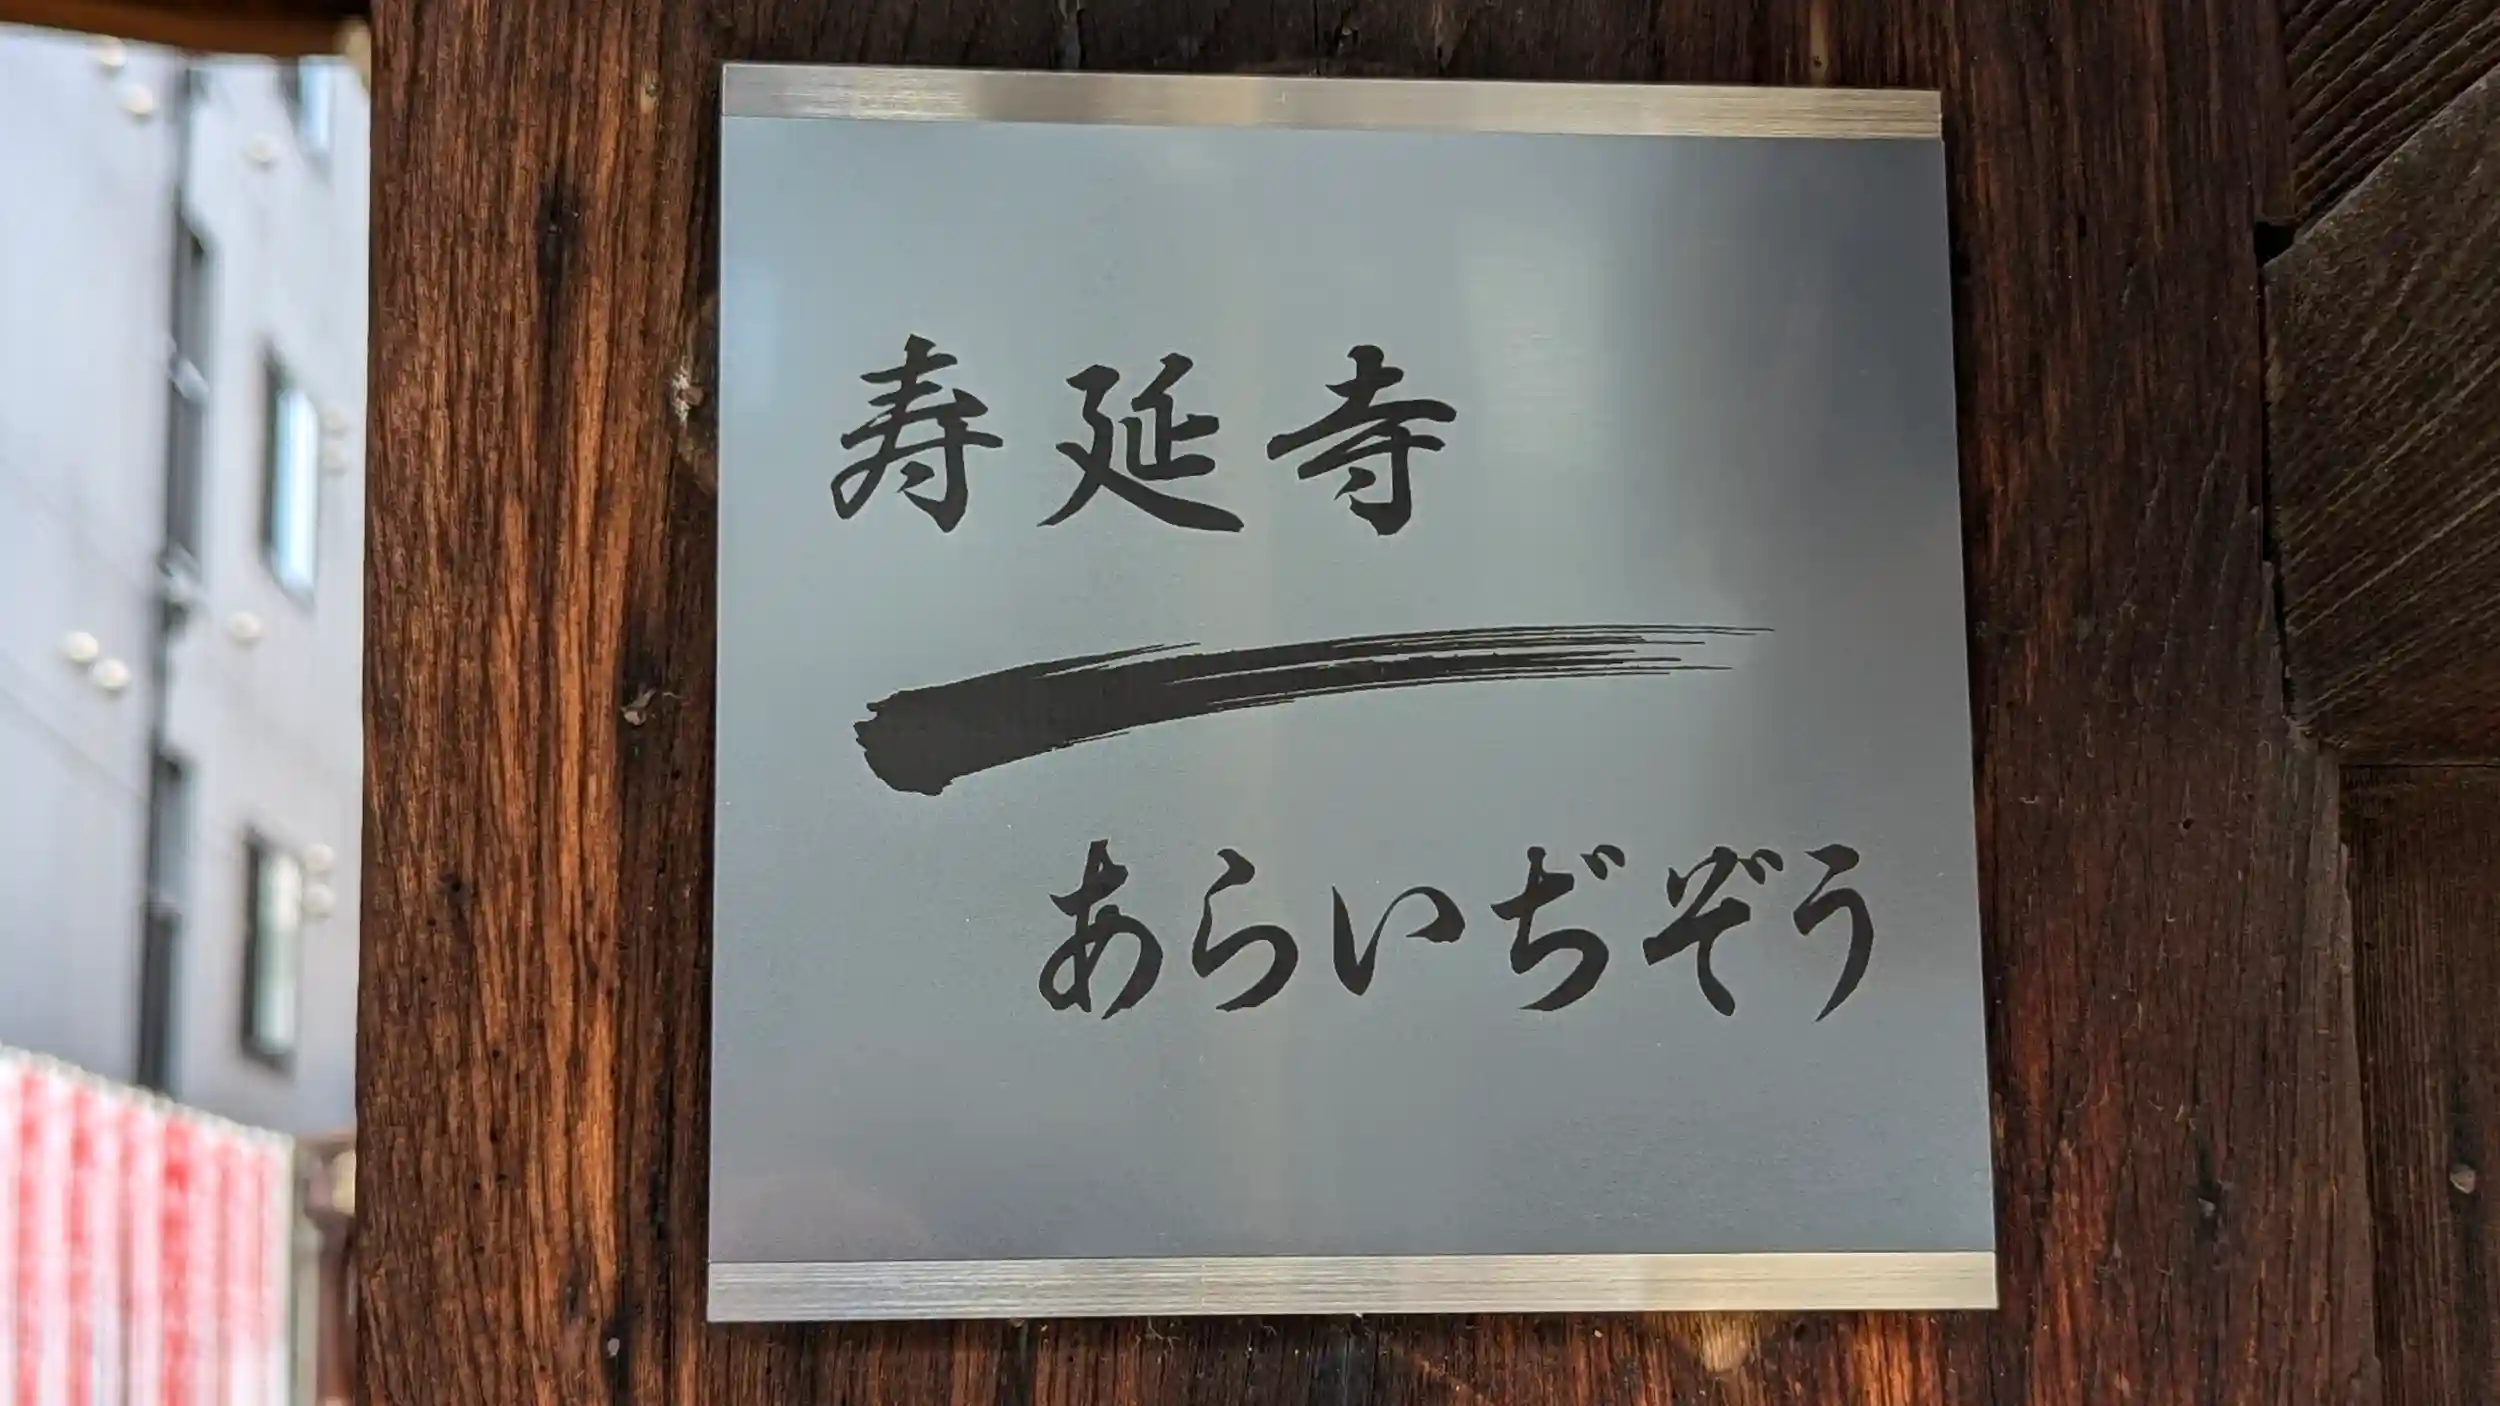 寿延寺
あらいぢぞう